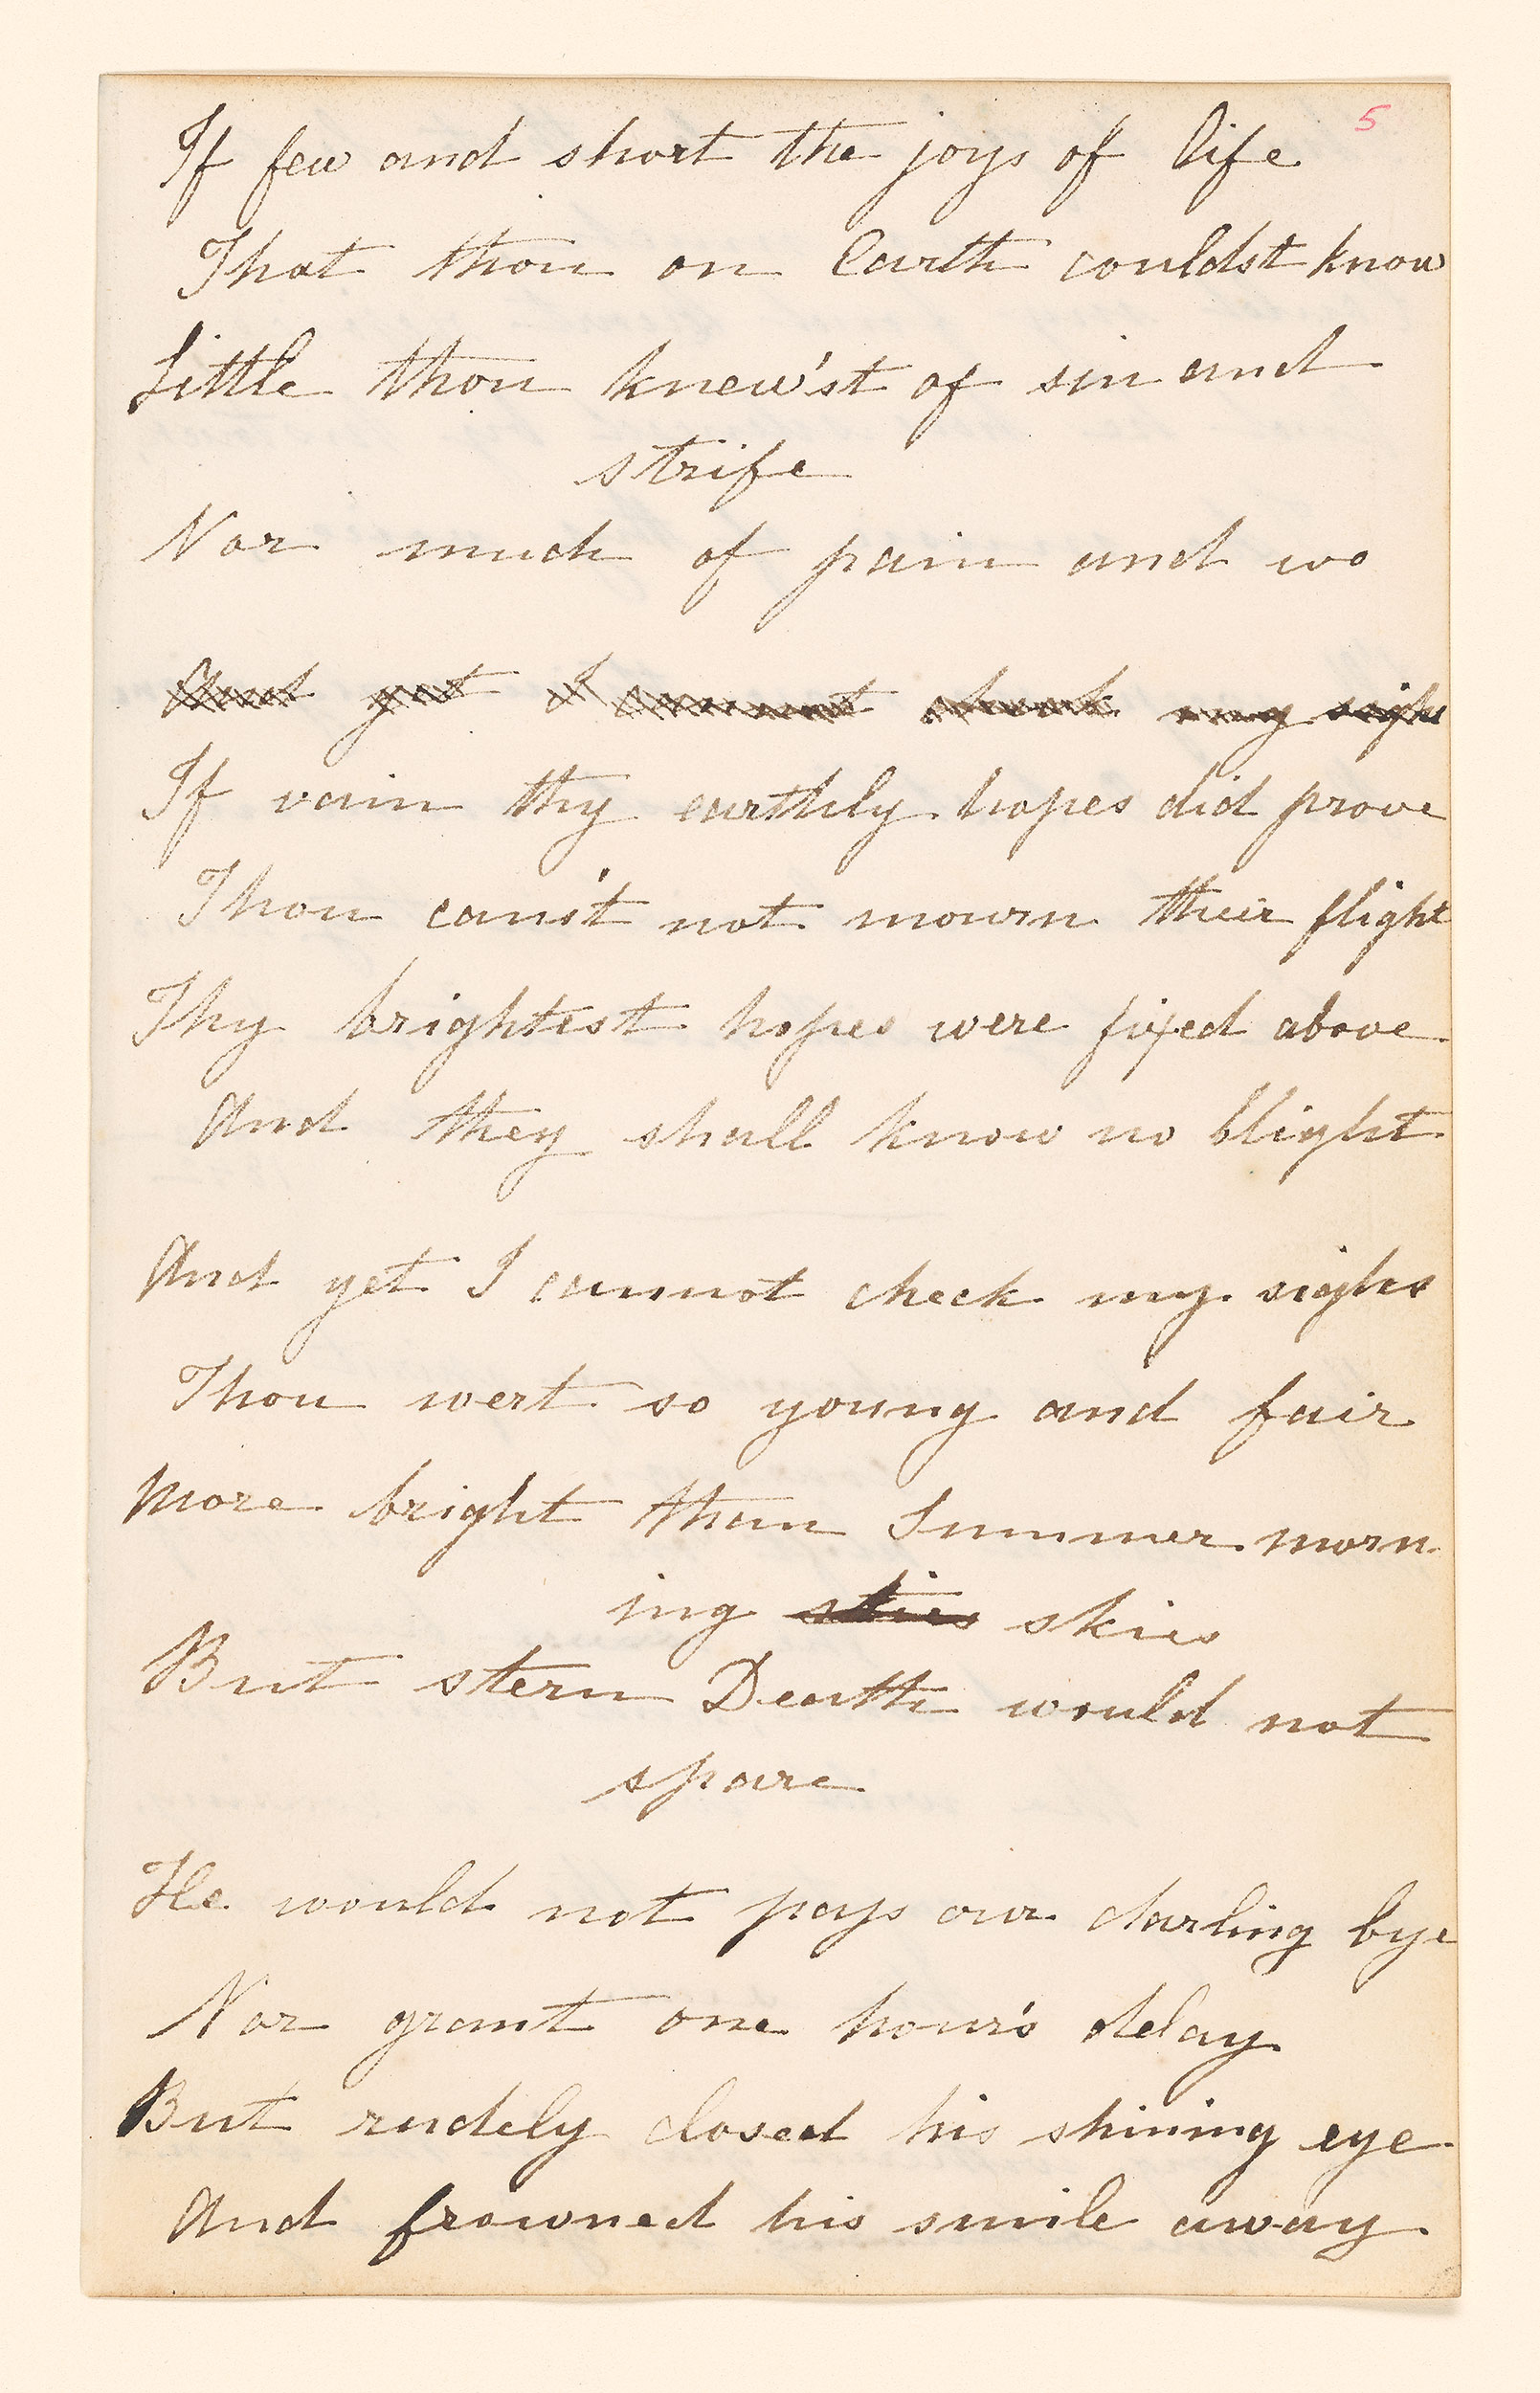 5
If few and short the joys of life
That thou on Earth couldst know
Little thou knew'st of sin and
strife
Nor much of pain and wo
And yet I cannot check my sighs
If vain thy earthly hopes did prove
Thou can'st not mourn their flight
Thy brightest hopes were fixed above
And they shall know no blight
And yet I cannot check my sighs
Thou wert so young and fair
More bright than Summer morn
ing skies skies
But stern Death would not
spare
He would not pass our darling bye
Nor grant one hour's delay
But rudely closed his shining eye
And frowned his smile away